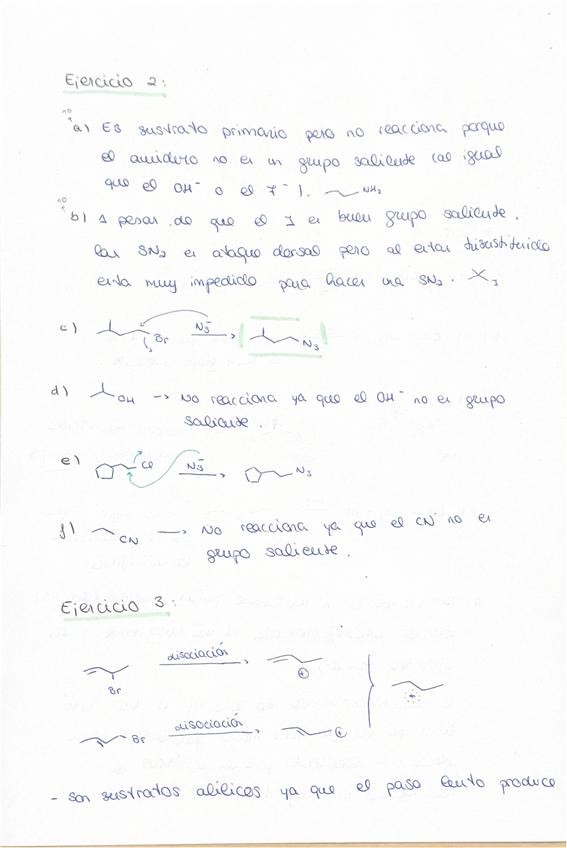 Ejercicio 2:
no
a) Es sustrato primario pero no reacciona porque
el amiduro no es un grupo saliente (al igual
que el OH⁻ o el F⁻). NH₂
no
b) A pesar de que el I es buen grupo saliente,
las SN₂ es ataque dorsal pero al estar trisustituido
esta muy impedido para hacer una SN₂. I
c) Br N₃⁻ N₃
d) OH → No reacciona ya que el OH⁻ no es grupo
saliente.
e) Cl N₃⁻ N₃
f) CN → No reacciona ya que el CN⁻ no es
grupo saliente.
Ejercicio 3:
Br disociación ⊕
Br disociación ⊕ +
- son sustratos alílicos ya que el paso lento produce